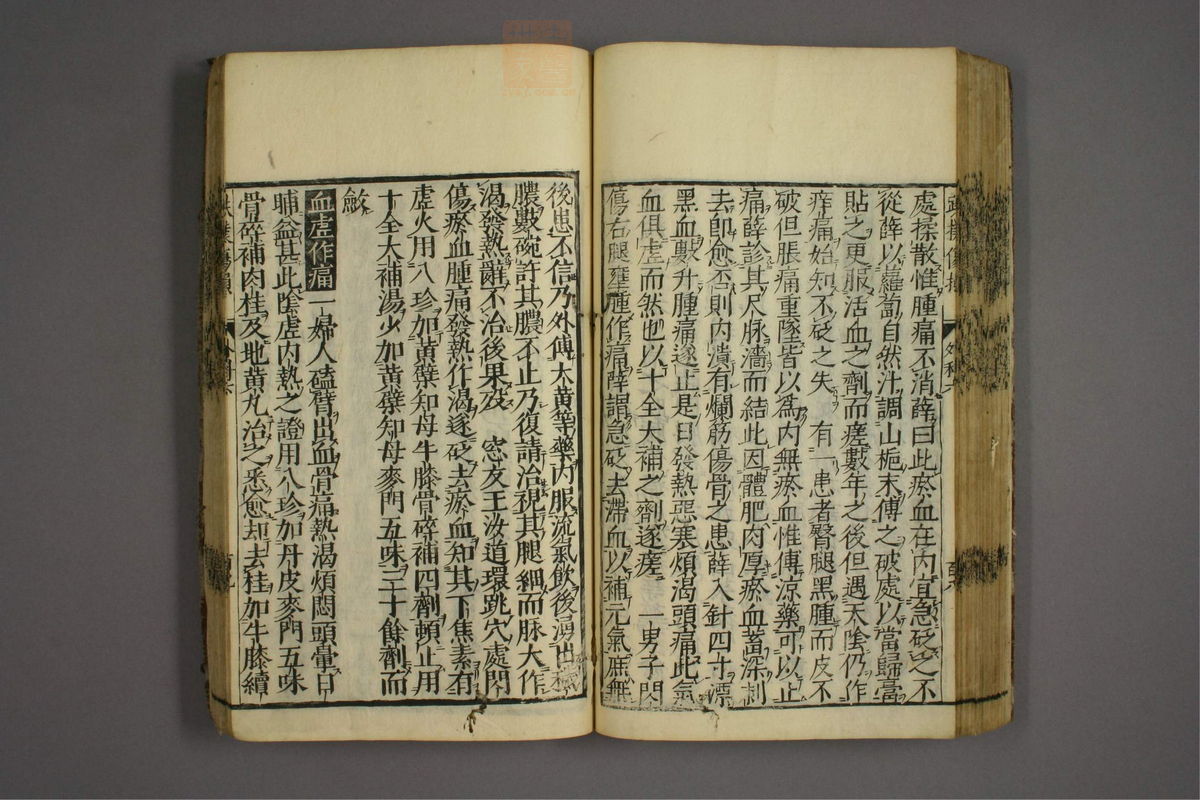 處搽散惟腫痛不消薛曰此瘀血在内宜急砭之不
從薛以蘿蔔自然汁調山梔末傅之破處以當歸膏
貼之更服活血之劑而瘥數年之後但遇天陰仍作
痒痛始知不砭之失 有一患者臀腿黑腫而皮不
破但脹痛重墜皆以為内無瘀血惟傅涼藥可以止
痛薛診其尺脉濇而結此因體肥肉厚瘀血蓄深刺
去即愈否則内潰有爛筋傷骨之患薛入針四寸漂
黑血數升腫痛遂止是日發熱惡寒煩渴頭痛此氣
血俱虛而然也以十全大補之劑遂瘥 一男子閃
傷右腿壅腫作痛薛謂急砭去滯血以補元氣庶無
後患不信乃外傅大黄等藥内服流氣飲後湧出
膿數碗許其膿不止乃復請治視其腿細而脉大作
渴發熱辭不治後果殁 窓友王汝道環跳穴處閃
傷瘀血腫痛發熱作渴遂砭去瘀血知其下焦素有
虛火用八珍加黄蘗知母牛膝骨碎補四劑頓止用
十全大補湯少加黄蘗知母麥門五味三十餘劑而
斂
血虛作痛 一婦人磕臂出血骨痛熱渴煩悶頭暈日
晡益甚此陰虛内熱之證用八珍加丹皮麥門五味
骨碎補肉桂及地黄丸治之悉愈却去桂加牛膝續